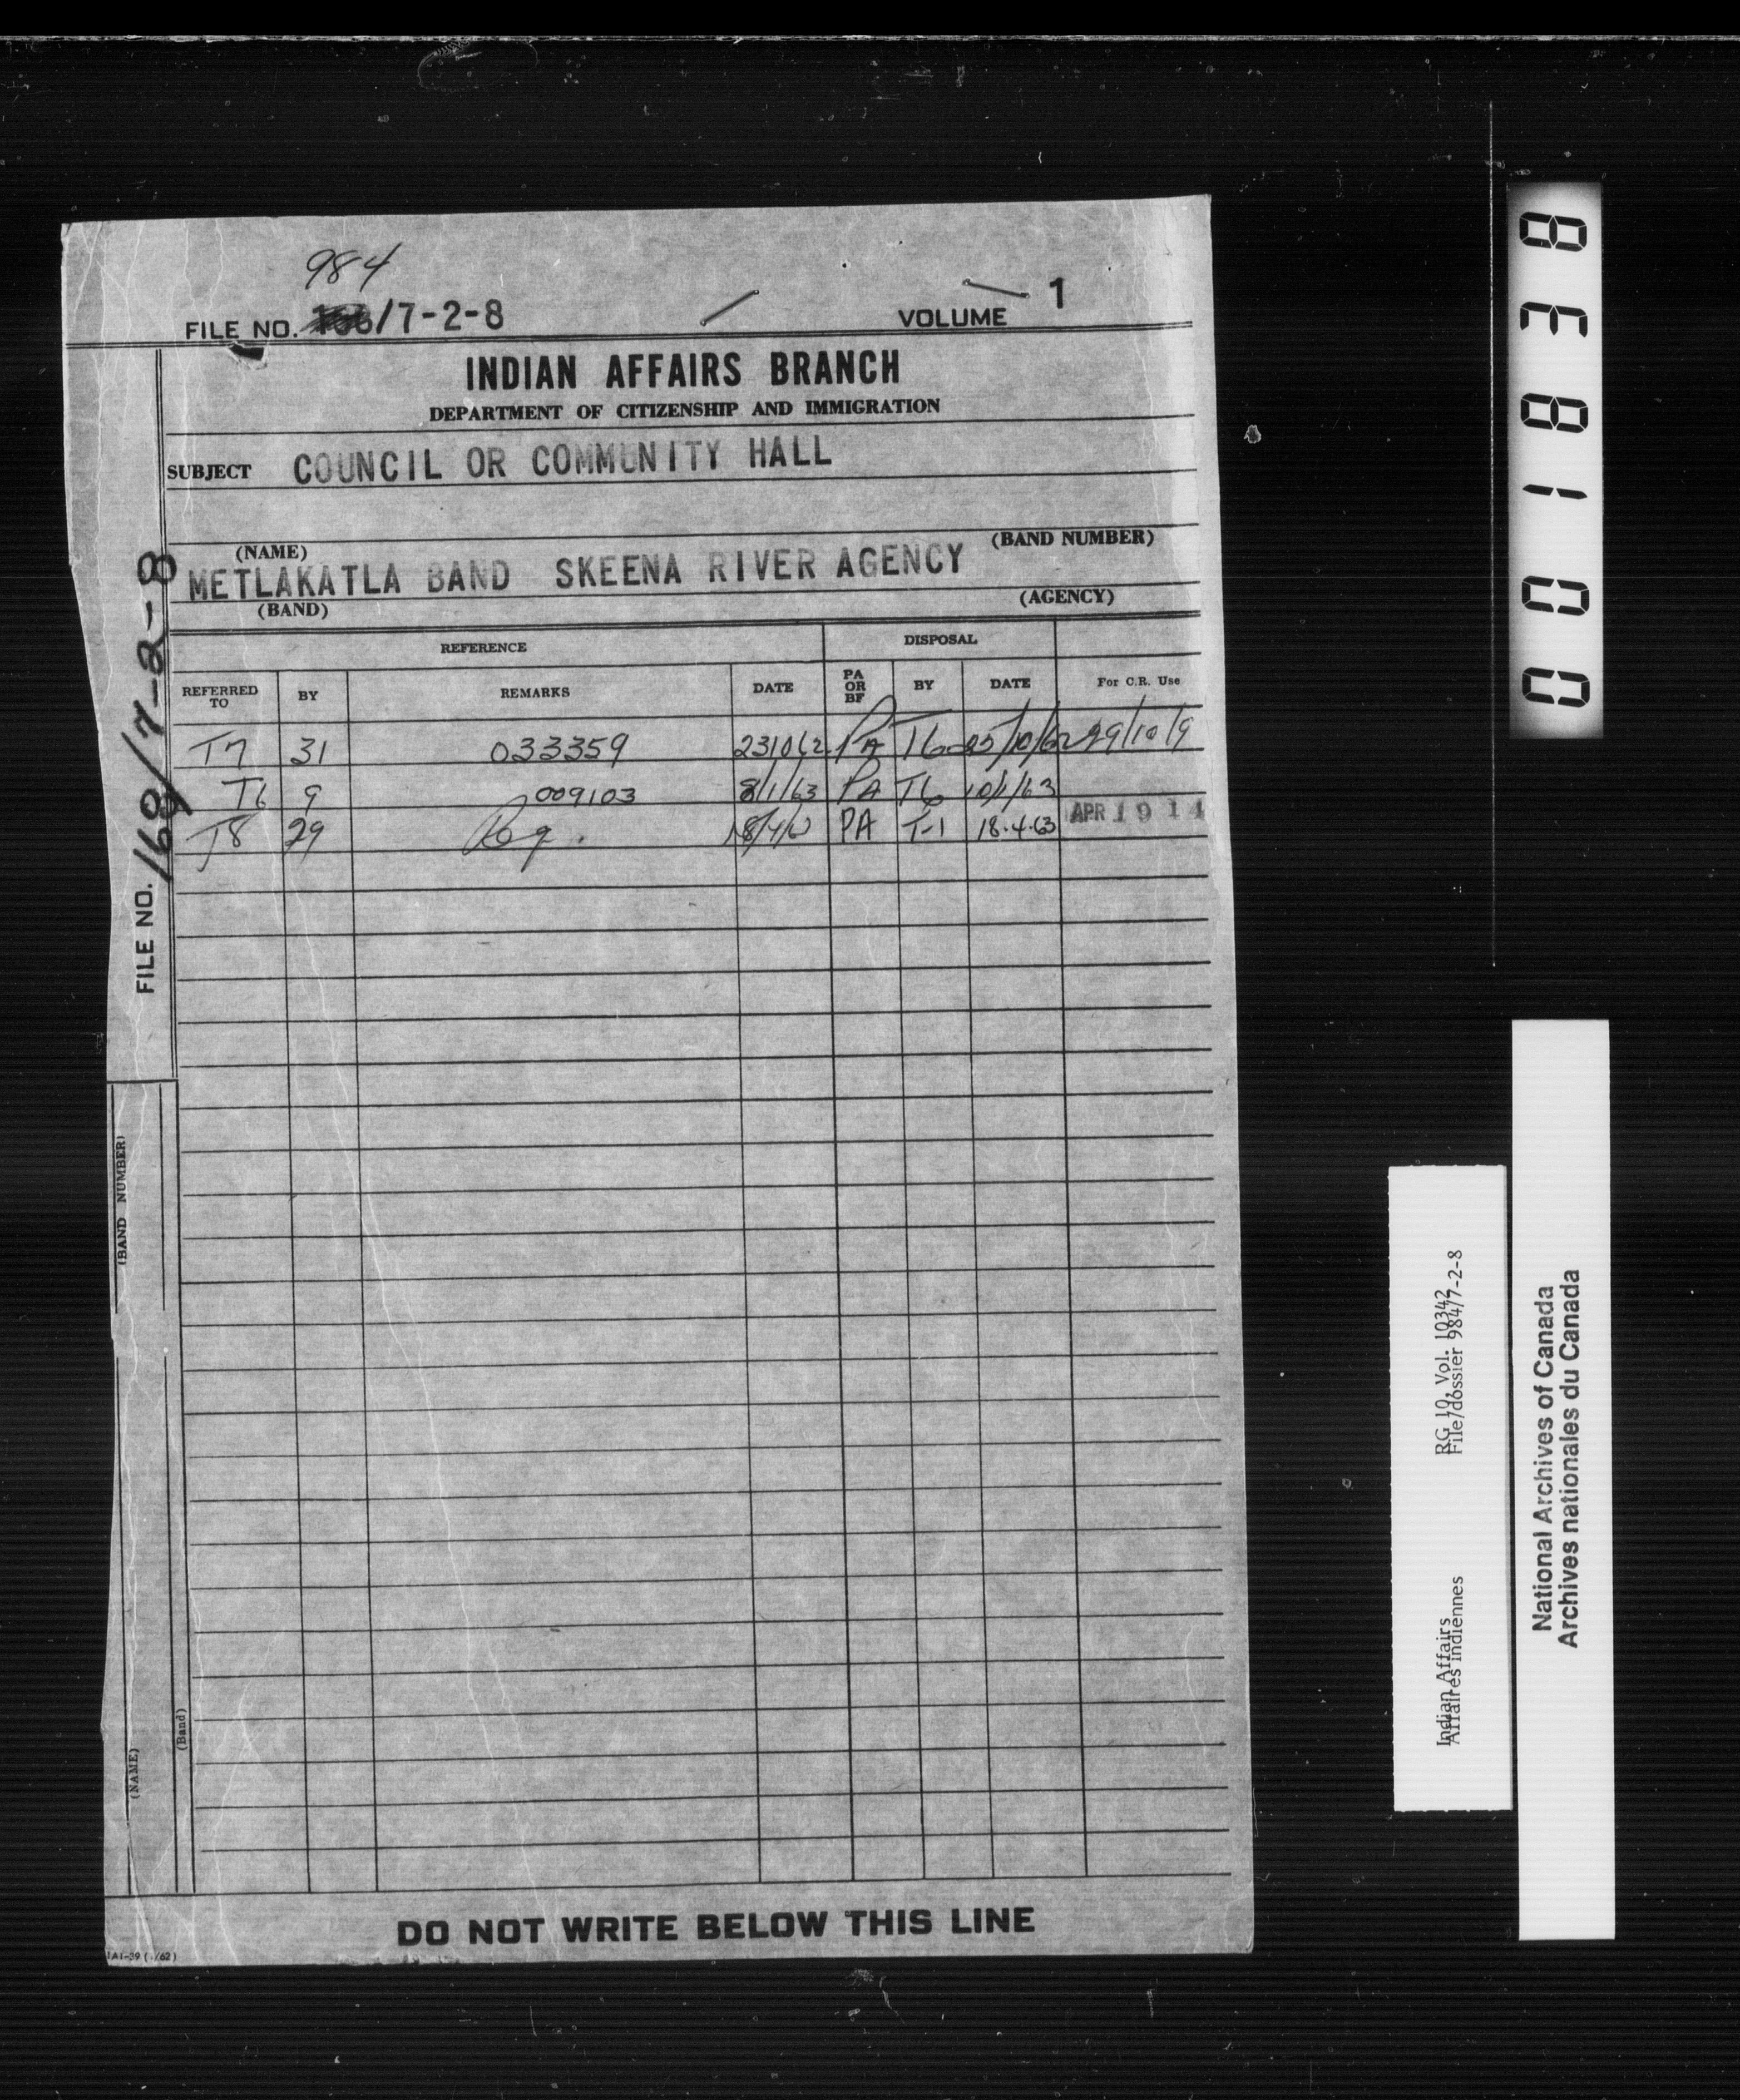 984
FILE NO. /7-2-8
VOLUME 1
INDIAN AFFAIRS BRANCH
DEPARTMENT OF CITIZENSHIP AND IMMIGRATION
SUBJECT COUNCIL OR COMMUNITY HALL
(NAME) (BAND NUMBER)
METLAKATLA BAND SKEENA RIVER AGENCY
(BAND) (AGENCY)
REFERENCE DISPOSAL
REFERRED TO BY REMARKS DATE PA OR BF BY DATE For C.R. Use
T7 31 033359 231062 PA T6 25/10/62 29/10/9
T6 9 009103 8/1/63 PA T6 10/1/63
T8 29 Rq. 18/4/63 PA T-1 18.4.63 APR 19 14
FILE NO. 168/7-2-8
(BAND NUMBER)
(NAME)
(Band)
DO NOT WRITE BELOW THIS LINE
IAI-39 ( /62)
001838
Indian Affairs RG 10, Vol. 10342
Affaires indiennes File/dossier 984/7-2-8
National Archives of Canada
Archives nationales du Canada